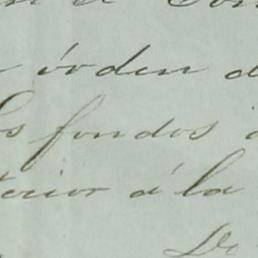 órden d
los fondos
terior á la
De